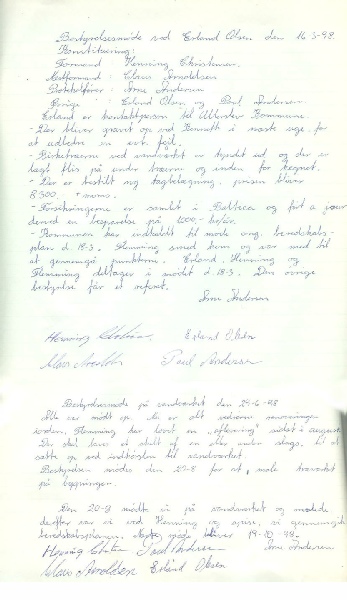 Bestyrelsesmøde ved Erland Olsen den 16-3-98.
Konstituering:
Formand Henning Christensen.
Næstformand: Claus Arnoldsen
Protokolfører: Arne Andersen
Øvrige Erland Olsen og Poul Andersen
Erland er kontaktperson til Allerslev Kommune.
- Der bliver gravet op ved i næste uge for
at udbedre en evt. fejl.
- Birketræerne ved vandværket er topskåret ud, og der er
lagt flis på under træerne og inden for hegnet.
- Der er bestilt ny tagbelægning, prisen bliver
8.300,- + moms.
- Forsikringerne er samlet i Baltica og ført a jour
derved en besparelse på 1000,- før.
- Kommunen har indkaldt til møde ang. beredskabs-
plan d. 18-3. Flemming Smed kom og var med til
at gennemgå punkterne. Erland, Henning og
Flemming deltager i mødet d. 18-3. Den øvrige
bestyrelse får et referat.
Arne Andersen
Henning Christensen Erland Olsen
Claus Arnoldsen Poul Andersen
Bestyrelsesmøde på vandværket den 24-6-98
Alle var mødt op.
jorden. Flemming har lovet en "aflevering" sidst i august.
Der skal laves et skilt af en eller anden slags, til at
sætte op ved indkørslen til vandværket.
Bestyrelsen mødes den 20-8 for at male træværket
på bygningen.
Den 20-8 mødte vi på vandværket og malede
derefter var vi ved Henning og spise, vi gennemgik
beredskabsplanen. Næste møde bliver 19-10-98.
Henning Christensen Poul Andersen Arne Andersen
Claus Arnoldsen Erland Olsen